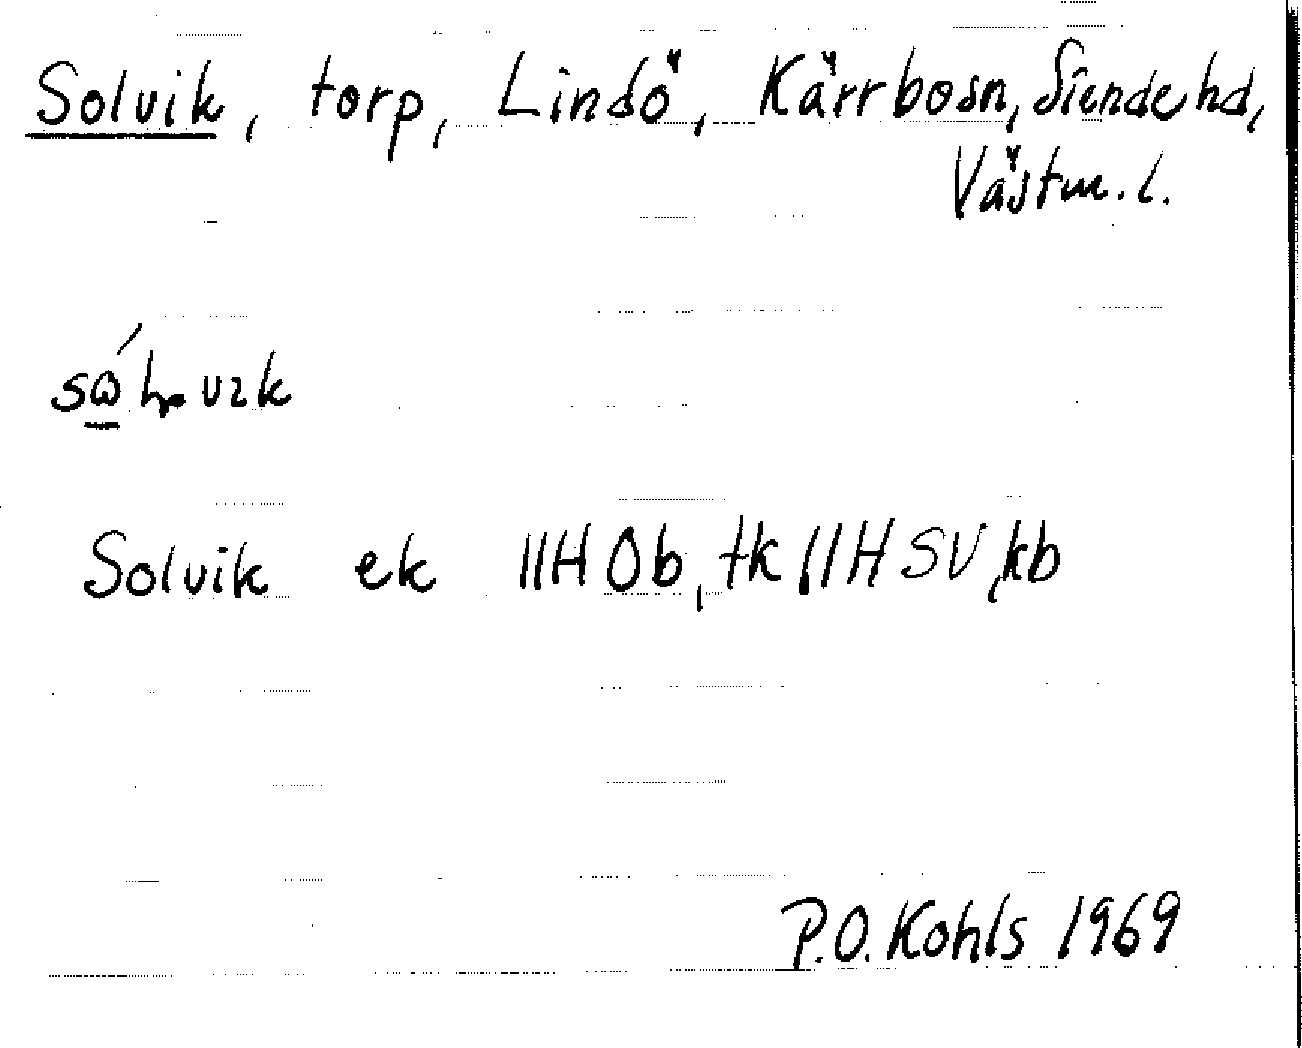 Solvik, torp, Lindö, Kärrbosn, Siende hd,
Västm. l.
Solvik ek 11H 0b, tk 11H SV, kb
P.O. Kohls 1969